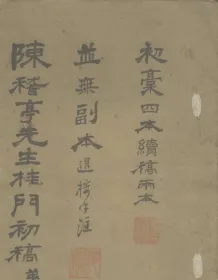 初稾四本續稿兩本
並無副本退樓手注
陳稽亭先生桂門初稿